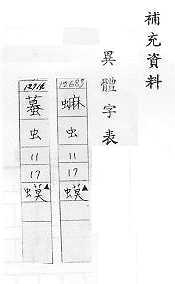 補充資料
異體字表
䗫
虫
11
17
蟆▲
蟇
虫
11
17
蟆▲